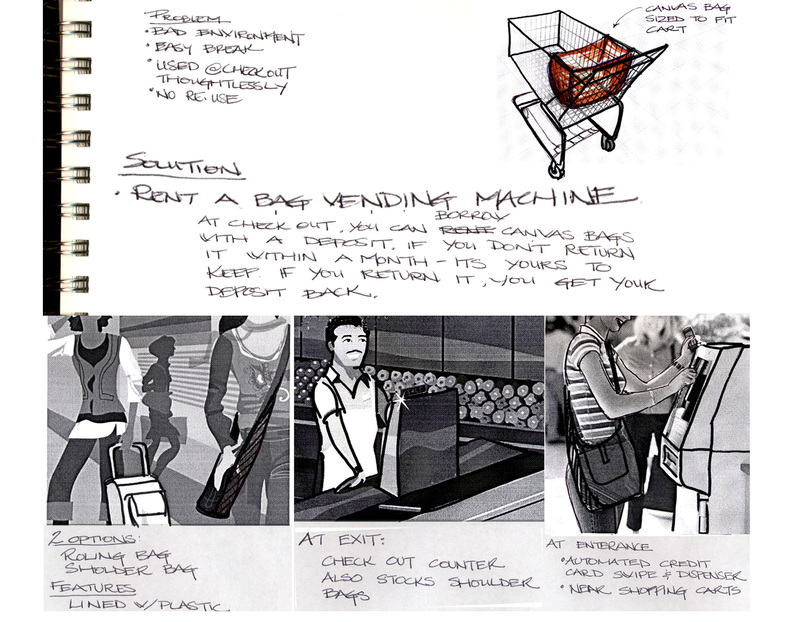 PROBLEM
• BAD ENVIRONMENT
• EASY BREAK
• USED @ CHECKOUT
THOUGHTLESSLY
• NO RE-USE
CANVAS BAG
SIZED TO FIT
CART
SOLUTION
• RENT A BAG VENDING MACHINE
BORROW
AT CHECK OUT, YOU CAN RENT CANVAS BAGS
WITH A DEPOSIT. IF YOU DON'T RETURN
IT WITHIN A MONTH - ITS YOURS TO
KEEP. IF YOU RETURN IT, YOU GET YOUR
DEPOSIT BACK.
2 OPTIONS:
ROLING BAG
SHOLDER BAG
FEATURES
LINED W/PLASTIC
AT EXIT:
CHECK OUT COUNTER
ALSO STOCKS SHOULDER
BAGS
AT ENTERANCE
• AUTOMATED CREDIT
CARD SWIPE & DISPENSER
• NEAR SHOPPING CARTS